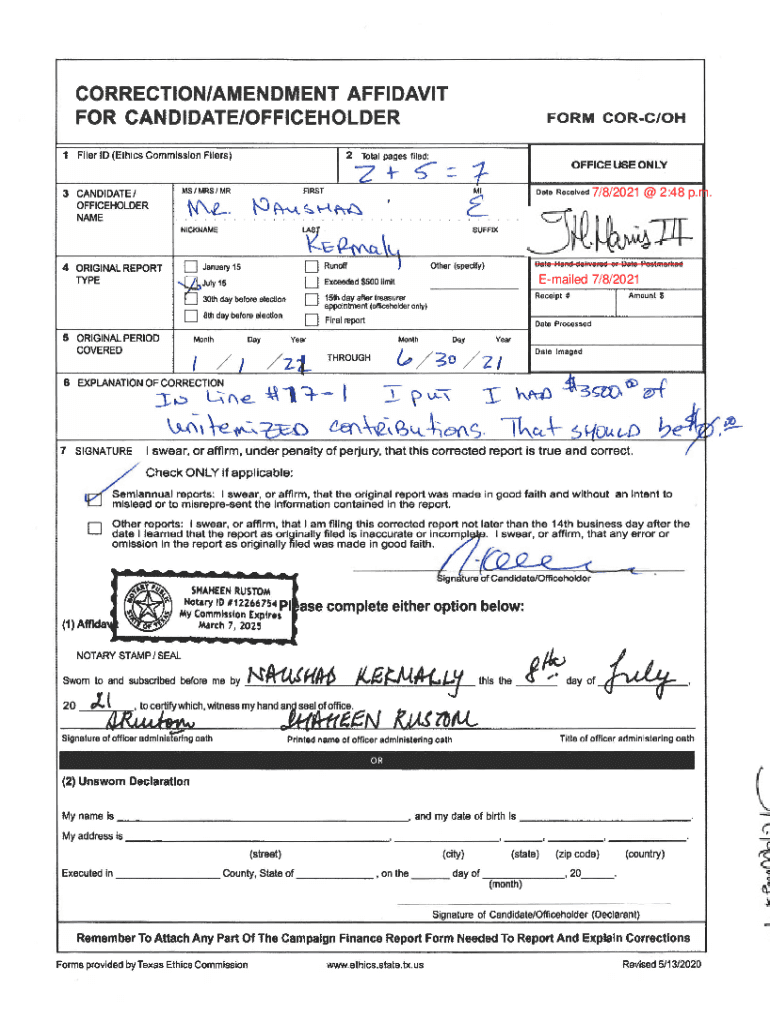 CORRECTION/AMENDMENT AFFIDAVIT
FOR CANDIDATE/OFFICEHOLDER
FORM COR-C/OH
1 Filer ID (Ethics Commission Filers)
2 Total pages filed:
2 + 5 = 7
OFFICE USE ONLY
3 CANDIDATE / OFFICEHOLDER NAME
MS / MRS / MR FIRST MI
Mr. NAUSHAD E
NICKNAME LAST SUFFIX
Kermally
Date Received 7/8/2021 @ 2:48 p.m.
JH Harris III
Date Hand-delivered or Date Postmarked
E-mailed 7/8/2021
Receipt # Amount $
Date Processed
Date Imaged
4 ORIGINAL REPORT TYPE
January 15 Runoff Other (specify)
July 15 Exceeded $500 limit
30th day before election 15th day after treasurer appointment (officeholder only)
8th day before election Final report
5 ORIGINAL PERIOD COVERED
Month Day Year Month Day Year
1 / 1 / 21 THROUGH 6 / 30 / 21
6 EXPLANATION OF CORRECTION
In Line #17-1 I put I had $3500.00 of
unitemized contributions. That should be
7 SIGNATURE I swear, or affirm, under penalty of perjury, that this corrected report is true and correct.
Check ONLY if applicable:
Semiannual reports: I swear, or affirm, that the original report was made in good faith and without an intent to
mislead or to misrepre-sent the information contained in the report.
Other reports: I swear, or affirm, that I am filing this corrected report not later than the 14th business day after the
date I learned that the report as originally filed is inaccurate or incomplete. I swear, or affirm, that any error or
omission in the report as originally filed was made in good faith.
Signature of Candidate/Officeholder
NOTARY PUBLIC
STATE OF TEXAS
SHAHEEN RUSTOM
Notary ID #12266754
My Commission Expires
March 7, 2025
Please complete either option below:
(1) Affidavit
NOTARY STAMP / SEAL
Sworn to and subscribed before me by NAUSHAD KERMALLY this the 8th day of July,
20 21, to certify which, witness my hand and seal of office.
SRustom SHAHEEN RUSTOM
Signature of officer administering oath Printed name of officer administering oath Title of officer administering oath
OR
(2) Unsworn Declaration
My name is , and my date of birth is .
My address is , , , , .
(street) (city) (state) (zip code) (country)
Executed in County, State of , on the day of , 20 .
(month)
Signature of Candidate/Officeholder (Declarant)
Remember To Attach Any Part Of The Campaign Finance Report Form Needed To Report And Explain Corrections
Forms provided by Texas Ethics Commission www.ethics.state.tx.us Revised 5/13/2020